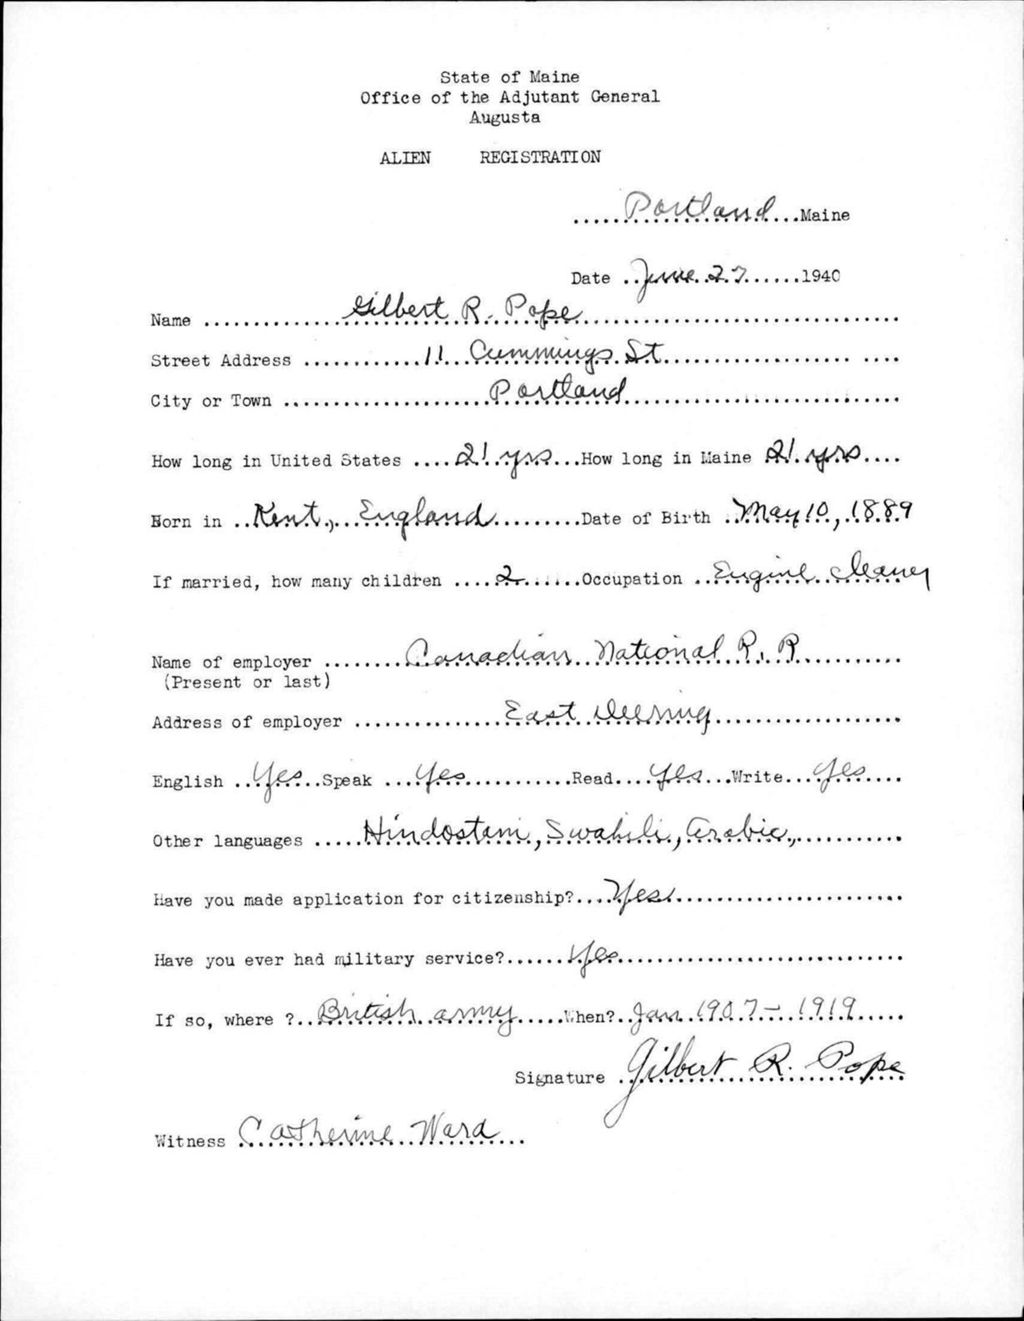 State of Maine
Office of the Adjutant General
Augusta
ALIEN REGISTRATION
.....Portland...Maine
Date ..June 27......1940
Name ..............Gilbert R. Pope...........................
Street Address ............11 Cummings St.................... ....
City or Town ..................Portland........................
How long in United States ....21 yrs...How long in Maine 21 yrs....
Born in ..Kent, England.........Date of Birth .May 10, 1889
If married, how many children ....2......Occupation ..Engine cleaner
Name of employer .......Canadian National R. R..........
(Present or last)
Address of employer ...............East Deering................
English ..Yes...Speak ...Yes...........Read....Yes...Write...Yes....
Other languages .....Hindostani, Swahili, Arabic,...........
Have you made application for citizenship?....Yes.......................
Have you ever had military service?......Yes.........................
If so, where ?..British army.....When?..Jan. 1907 - 1919.....
Signature .Gilbert R. Pope
Witness Catherine Ward...